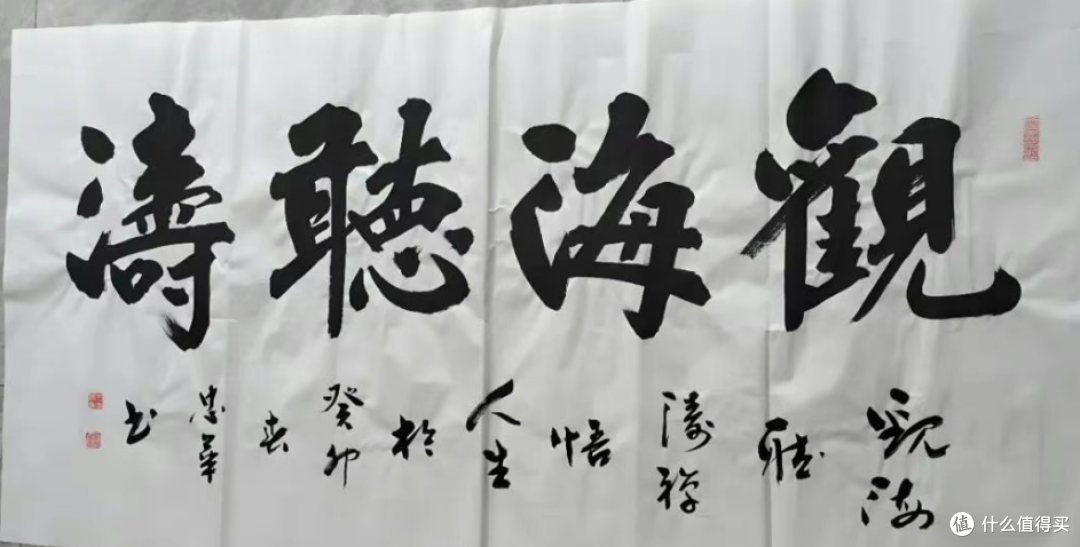 觀海聽濤
觀海
聽
濤禪
悟
人生
於
癸卯
春
忠華
书
值 什么值得买